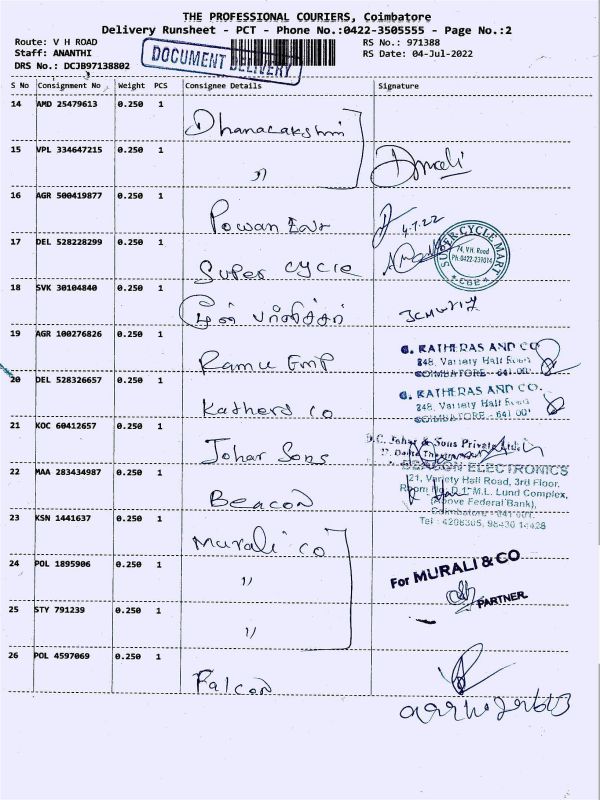 THE PROFESSIONAL COURIERS, Coimbatore
Delivery Runsheet - PCT - Phone No.:0422-3505555 - Page No.:2
Route: V H ROAD
RS No.: 971388
Staff: ANANTHI
RS Date: 04-Jul-2022
DRS No.: DCJB97138802
DOCUMENT DELIVERY
S No Consignment No Weight PCS Consignee Details Signature
14 AMD 25479613 0.250 1
Dhanalakshmi
15 VPL 334647215 0.250 1
"
16 AGR 500419877 0.250 1
Powan Ent
4.7.22
17 DEL 528228299 0.250 1
Super cycle
SUPER CYCLE MART
74, V.H. Road
Ph:0422-2391014
* CBE *
18 SVK 30104840 0.250 1
19 AGR 100276826 0.250 1
Ramu Emp
G. KATHERAS AND CO
848, Variety Hall Road
COIMBATORE - 641 001
20 DEL 528326657 0.250 1
Kathers co
G. KATHERAS AND CO.
248, Variety Hall Road
COIMBATORE - 641 001
21 KOC 60412657 0.250 1
Johar Sons
D.C. Johar & Sons Private Ltd.
22 MAA 283434987 0.250 1
Beacon
BEACON ELECTRONICS
121, Variety Hall Road, 3rd Floor,
Room No. D.1" M.L. Lund Complex,
(Above Federal Bank),
Coimbatore - 641 001.
Tel : 4208305, 98430 14428
23 KSN 1441637 0.250 1
Murali co
24 POL 1895906 0.250 1
"
For MURALI & CO
PARTNER.
25 STY 791239 0.250 1
"
26 POL 4597069 0.250 1
Falcon